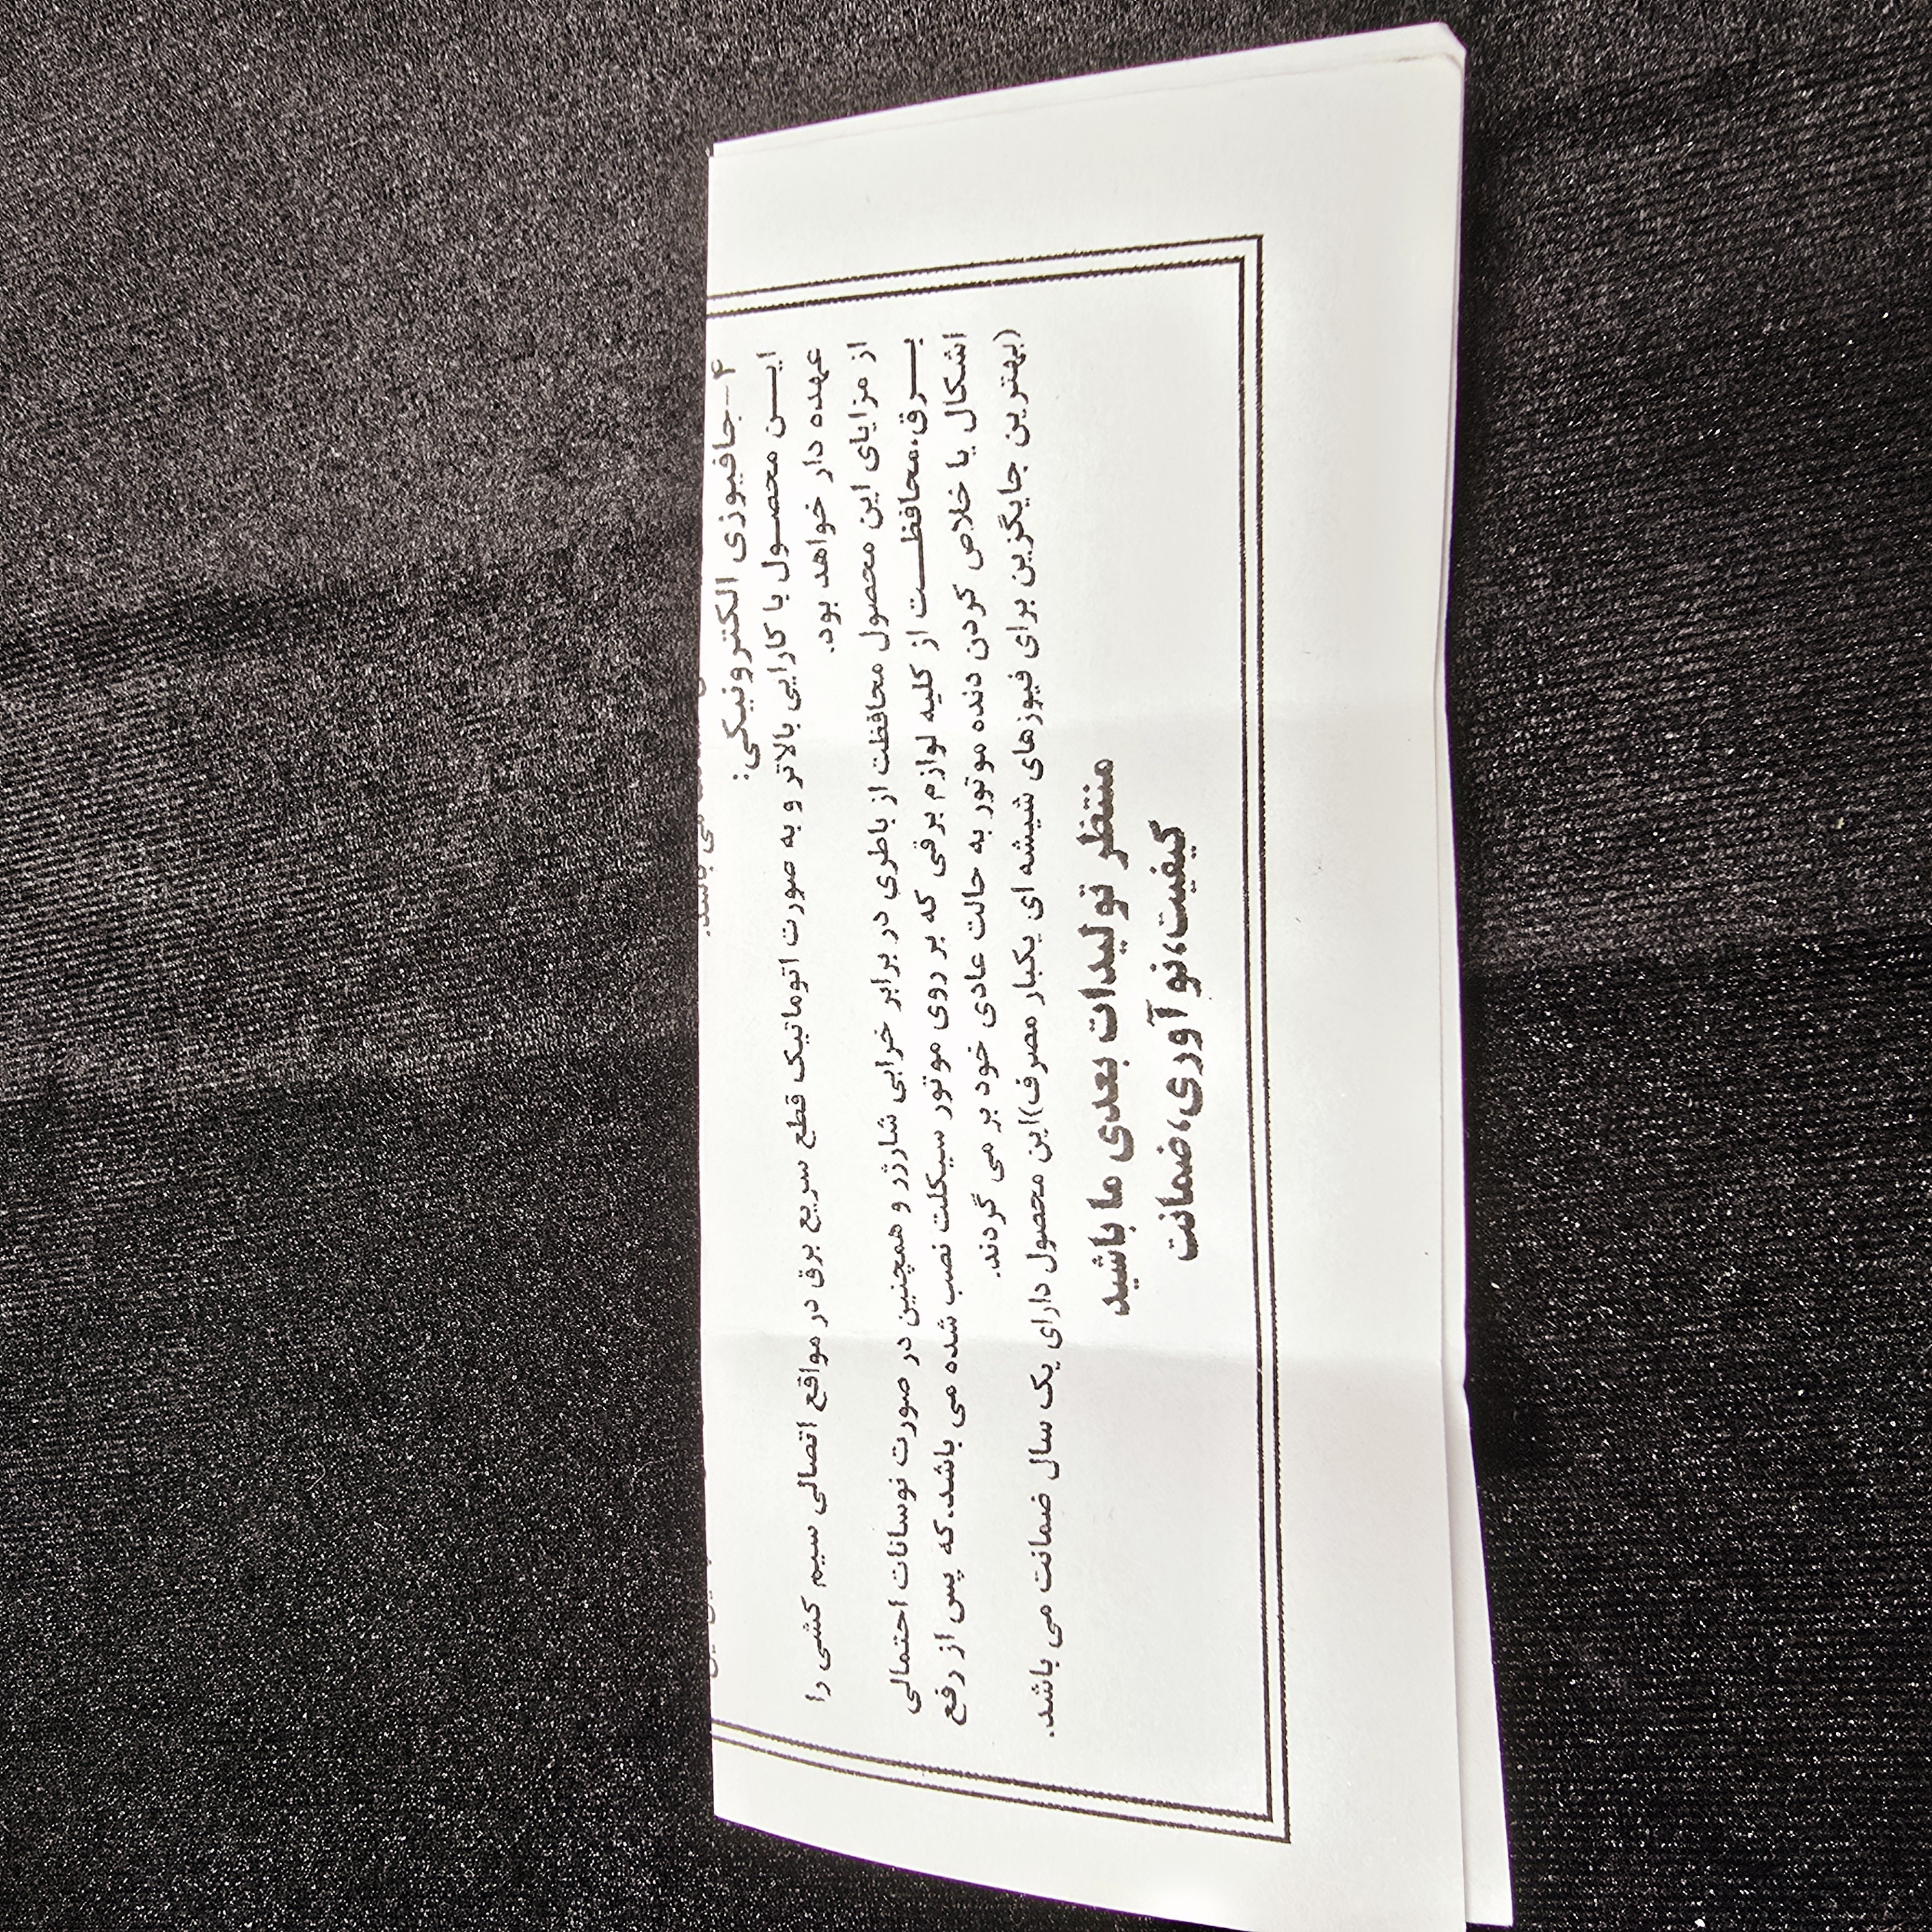 ۴-جافیوزی الکترونیکی:
ایـــن محصــول با کارایی بالاتر و به صورت اتوماتیک قطع سریع برق در مواقع اتصالی سیم کشی را
عهده دار خواهد بود.
از مزایای این محصول محافظت از باطری در برابر خرابی شارژر و همچنین در صورت نوسانات احتمالی
بـــرق،محافظـــت از کلیه لوازم برقی که بر روی موتور سیکلت نصب شده می باشد.که پس از رفع
اشکال با خلاص کردن دنده موتور به حالت عادی خود بر می گردند.
(بهترین جایگزین برای فیوزهای شیشه ای یکبار مصرف))این محصول دارای یک سال ضمانت می باشد.
منتظر تولیدات بعدی ما باشید
کیفیت،نوآوری،ضمانت